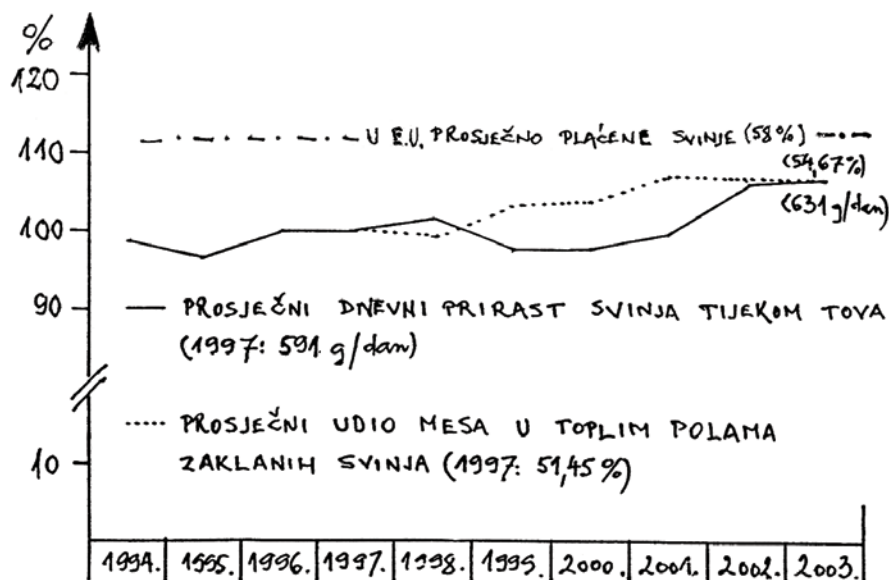 %
120
U E.U. PROSJEČNO PLAĆENE SVINJE (58%)
110
(54,67%)
(631 g/dan)
100
90
PROSJEČNI DNEVNI PRIRAST SVINJA TIJEKOM TOVA
(1997: 591 g/dan)
PROSJEČNI UDIO MESA U TOPLIM POLAMA
ZAKLANIH SVINJA (1997: 51,45%)
10
1994. 1995. 1996. 1997. 1998. 1999. 2000. 2001. 2002. 2003.